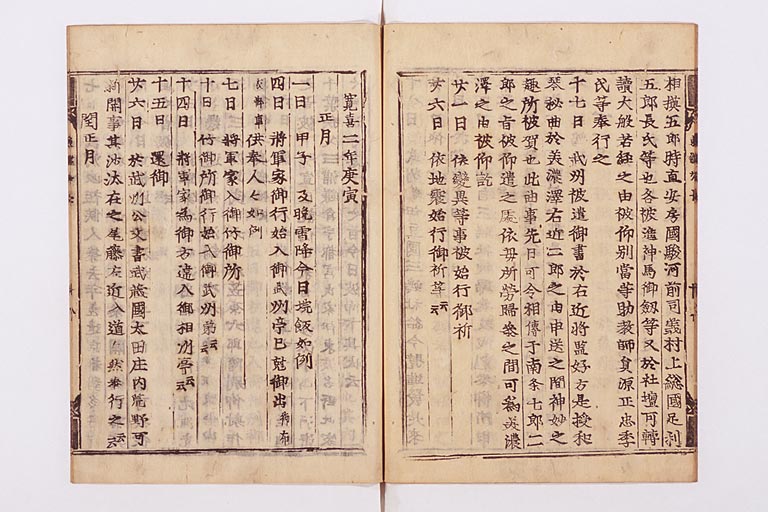 相摸五郎時直安房國駿河前司義村上総國足利
五郎長氏等也各被進神馬御釼等又於社壇可轉
讀大般若経之由被仰別當等助教師員源正忠季
氏等奉行之
十七日 武州被遣御書於右近将監好方是授和
琴秘曲於美濃澤右近二郎之由申送之間神妙之
趣所被賀也此曲事先日可令相傳于南条七郎二
郎之旨被仰遣之處依毋所勞帰参之間可為美濃
澤之由被仰託
廿一日 依變異等事被始行御祈
廿六日 依地震始行御祈等云々
寛喜二年庚寅
正月
一日 甲子 及晩雪降今日垸飯如例
四日 将軍家御行始入御武州亭已尅御出
供奉人々如例
七日 将軍家入御竹御所
十日 竹御所御行始入御武州第云々
十四日 将軍家為御方違入御相州亭云々
十五日 還御
廿六日 於武州公文書武蔵國太田庄内荒野可
新開事其沙汰在之尾藤左近入道 然奉行之云々
閏正月